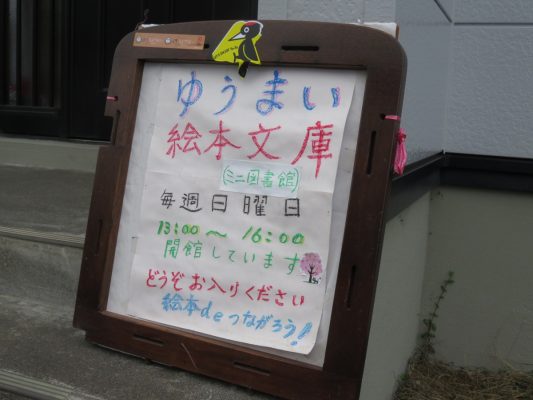 ゆうまい
絵本文庫
(ミニ図書館)
毎週日曜日
13:00～16:00
開館しています
どうぞお入りください
絵本deつながろう!